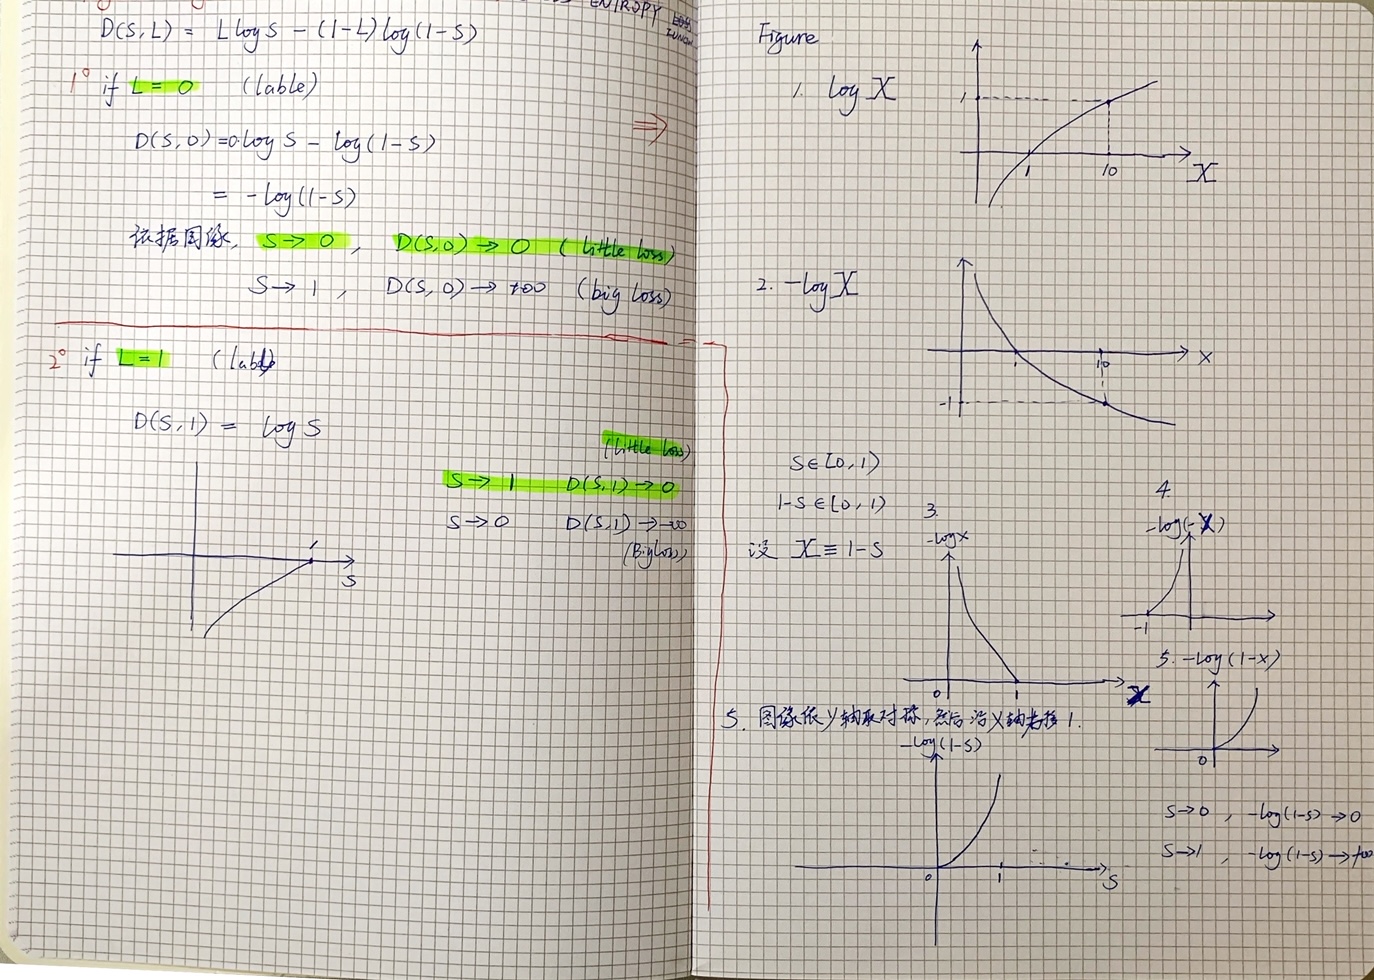 ENTROPY
D(S,L) = L log S - (1-L) log(1-S)
1° if L = 0 (lable)
D(S,0) = 0·log S - log(1-S)
= -log(1-S)
依据图像, S→0, D(S,0)→0 (little loss)
S→1, D(S,0)→+∞ (big loss)
2° if L=1 (lable)
D(S,1) = log S
(little loss)
S→1 D(S,1)→0
S→0 D(S,1)→-∞
(Big loss)
1
S
⇒
Figure
1. log X
1
1
10
X
2. -log X
1
10
X
-1
S∈[0,1)
1-S∈[0,1)
设 X≡1-S
3.
-log x
0
1
X
4.
-log(-X)
-1
5. -log(1-x)
0
5. 图像依y轴取对称,然后沿X轴右移1.
-log(1-S)
0
1
S
S→0, -log(1-S)→0
S→1, -log(1-S)→+∞